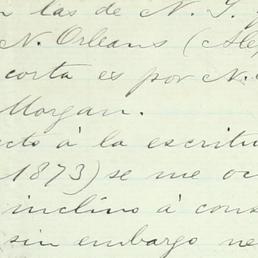 las de N. Y.
N. Orleans (Ale
corta es por N.
Morgan.
cto à la escritu
1873) se me oc
inclino à cons
sin embargo ne